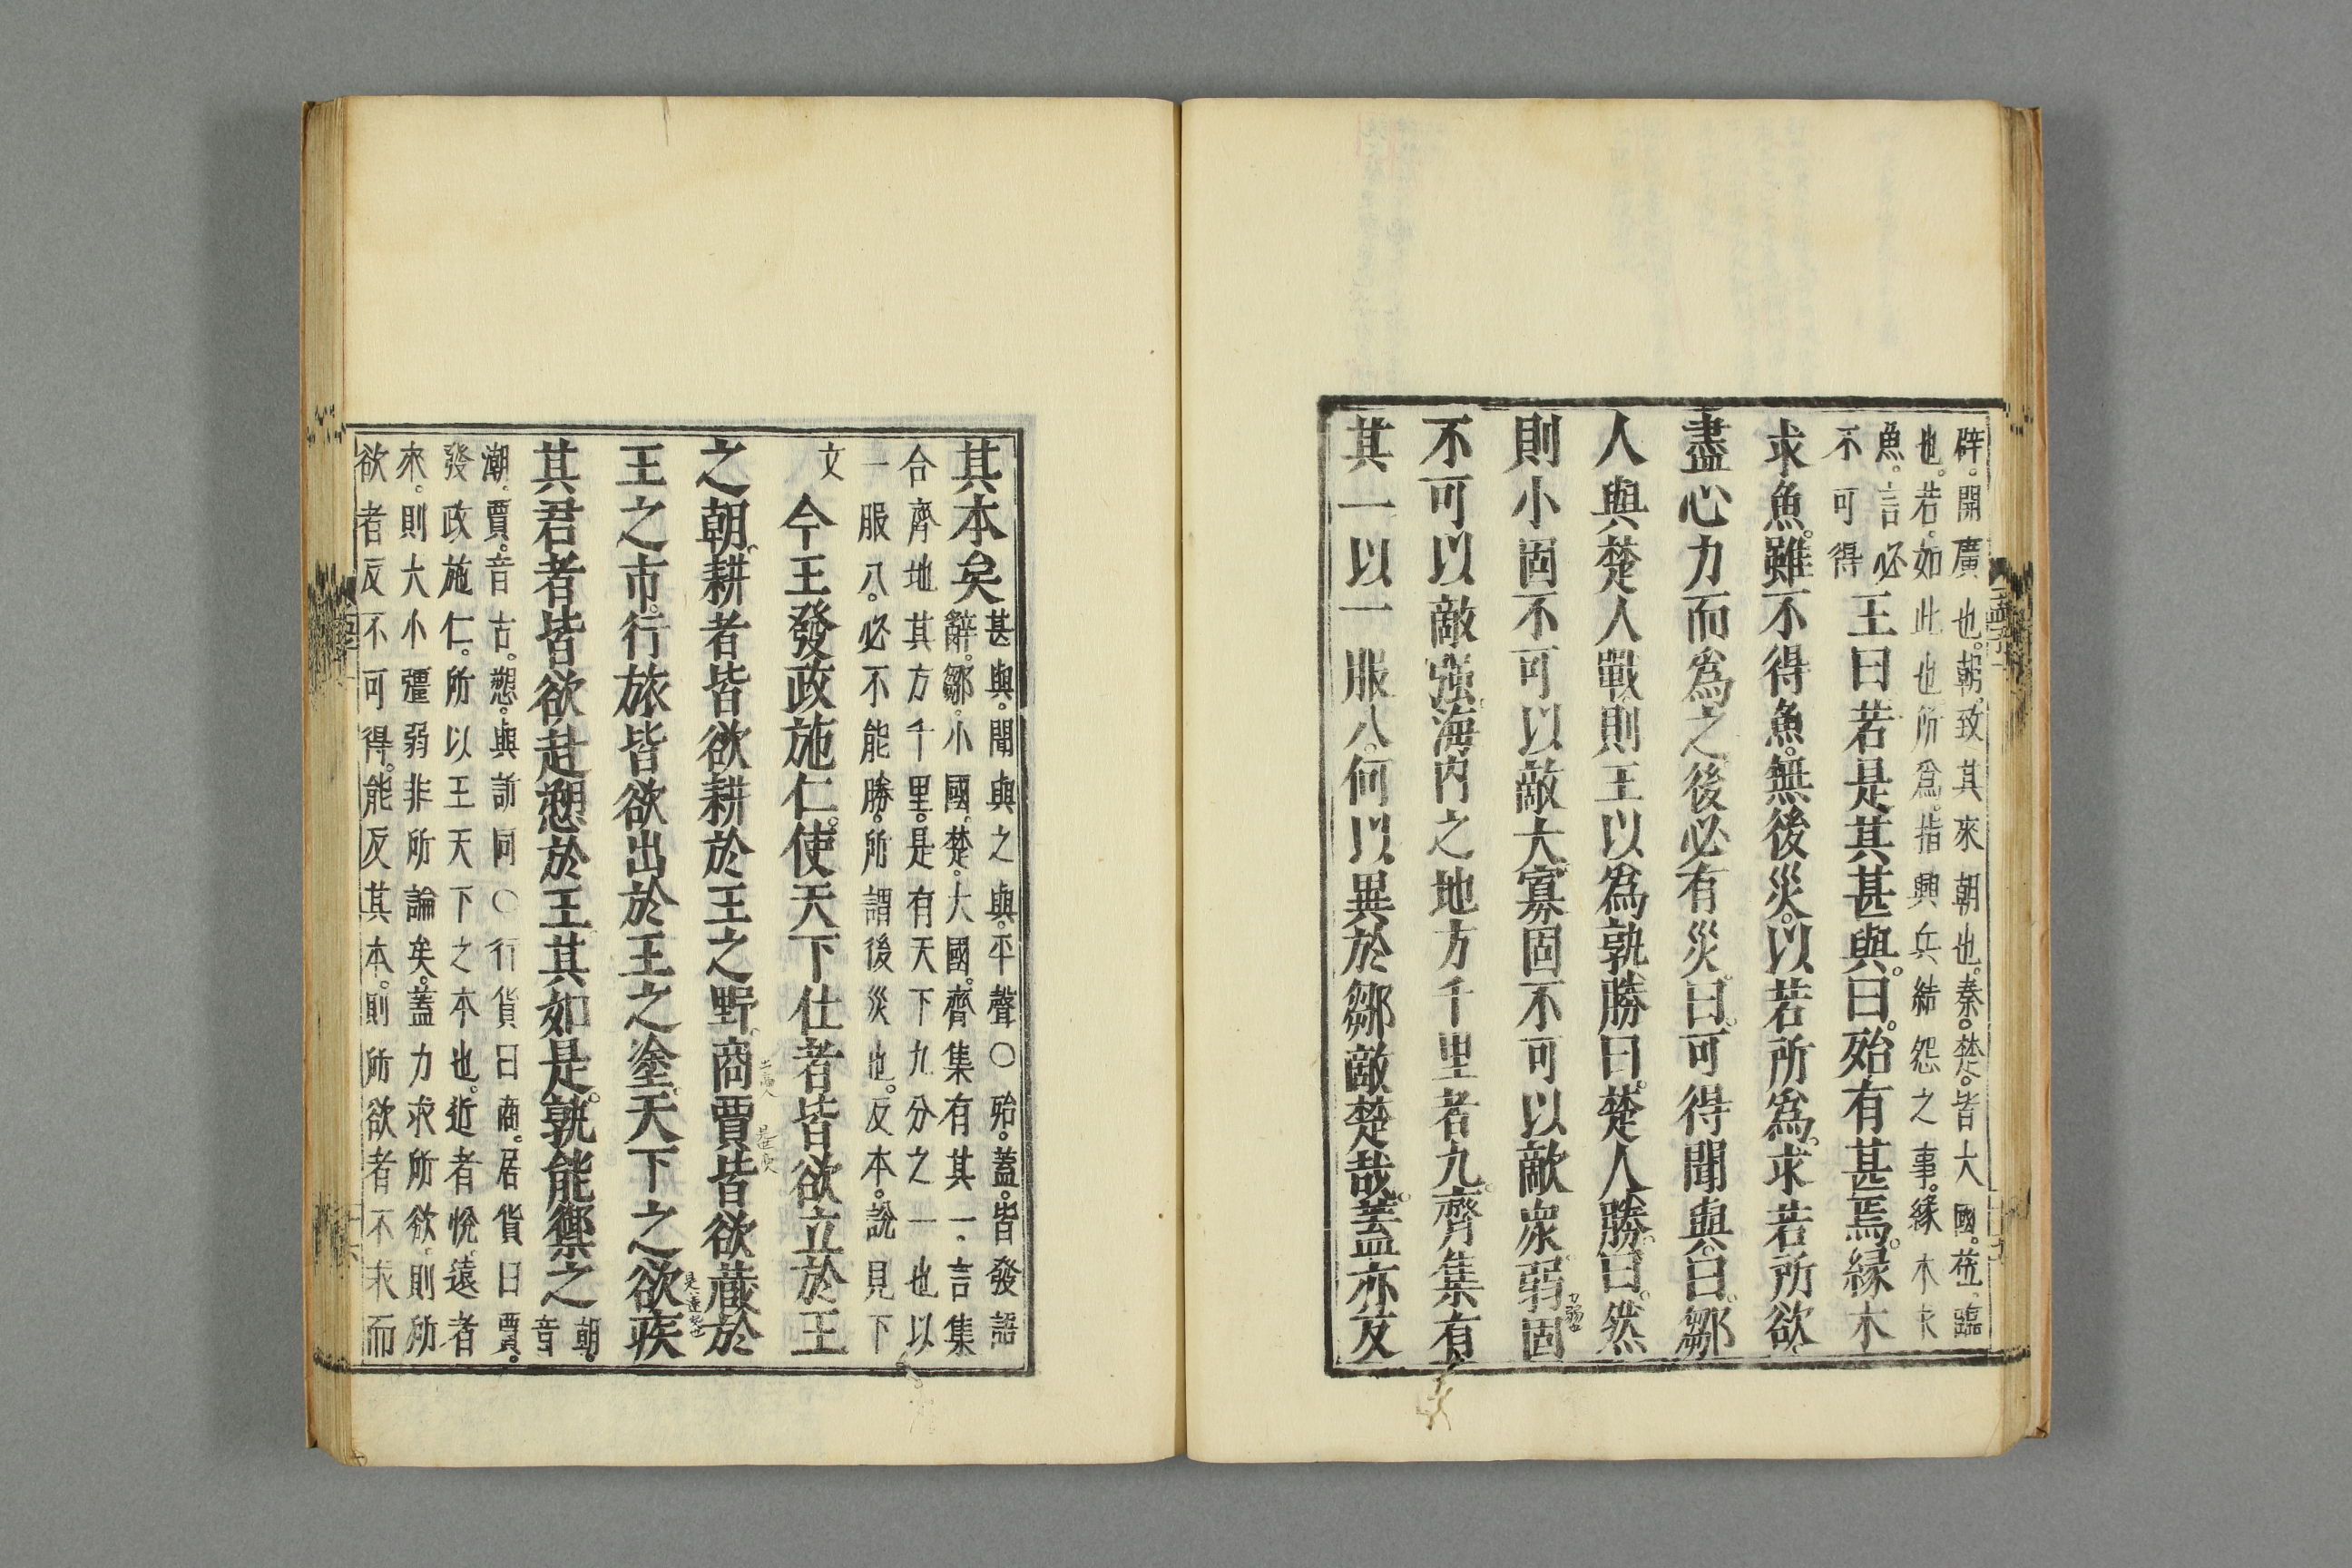 辟。開廣也。朝。致其來朝也。秦。楚。皆大國。莅。臨
也。若。如此也所爲。指興兵結怨之事。緣木求
魚。言必
不可得
王曰若是其甚與。曰。殆有甚焉。緣木
求魚。雖不得魚。無後災。以若所爲。求若所欲。
盡心力而爲之後必有災。曰。可得聞與。曰。鄒
人與楚人戰則王以爲孰勝曰。楚人勝。曰。然
則小固不可以敵大寡固不可以敵衆。弱固
不可以敵强。海内之地方千里者九。齊集有
其一以一服八。何以異於鄒敵楚哉。蓋亦反
其本矣
甚與。聞與之與。平聲○殆。蓋。皆發語
辭。鄒。小國。楚。大國。齊集有其一。言集
合齊地其方千里。是有天下九分之一也以
一服八。必不能勝。所謂後災也。反本。說見下
文
今王發政施仁。使天下仕者皆欲立於王
之朝。耕者皆欲耕於王之野。商賈皆欲藏於
王之市。行旅皆欲出於王之塗。天下之欲疾
其君者皆欲赴愬於王。其如是。孰能禦之
朝。
音
潮。賈。音古。愬。與訴同○行貨曰商。居貨曰賈。
發政施仁。所以王天下之本也。近者悅。遠者
來。則大小彊弱非所論矣。蓋力求所欲。則所
欲者反不可得。能反其本。則所欲者不求而